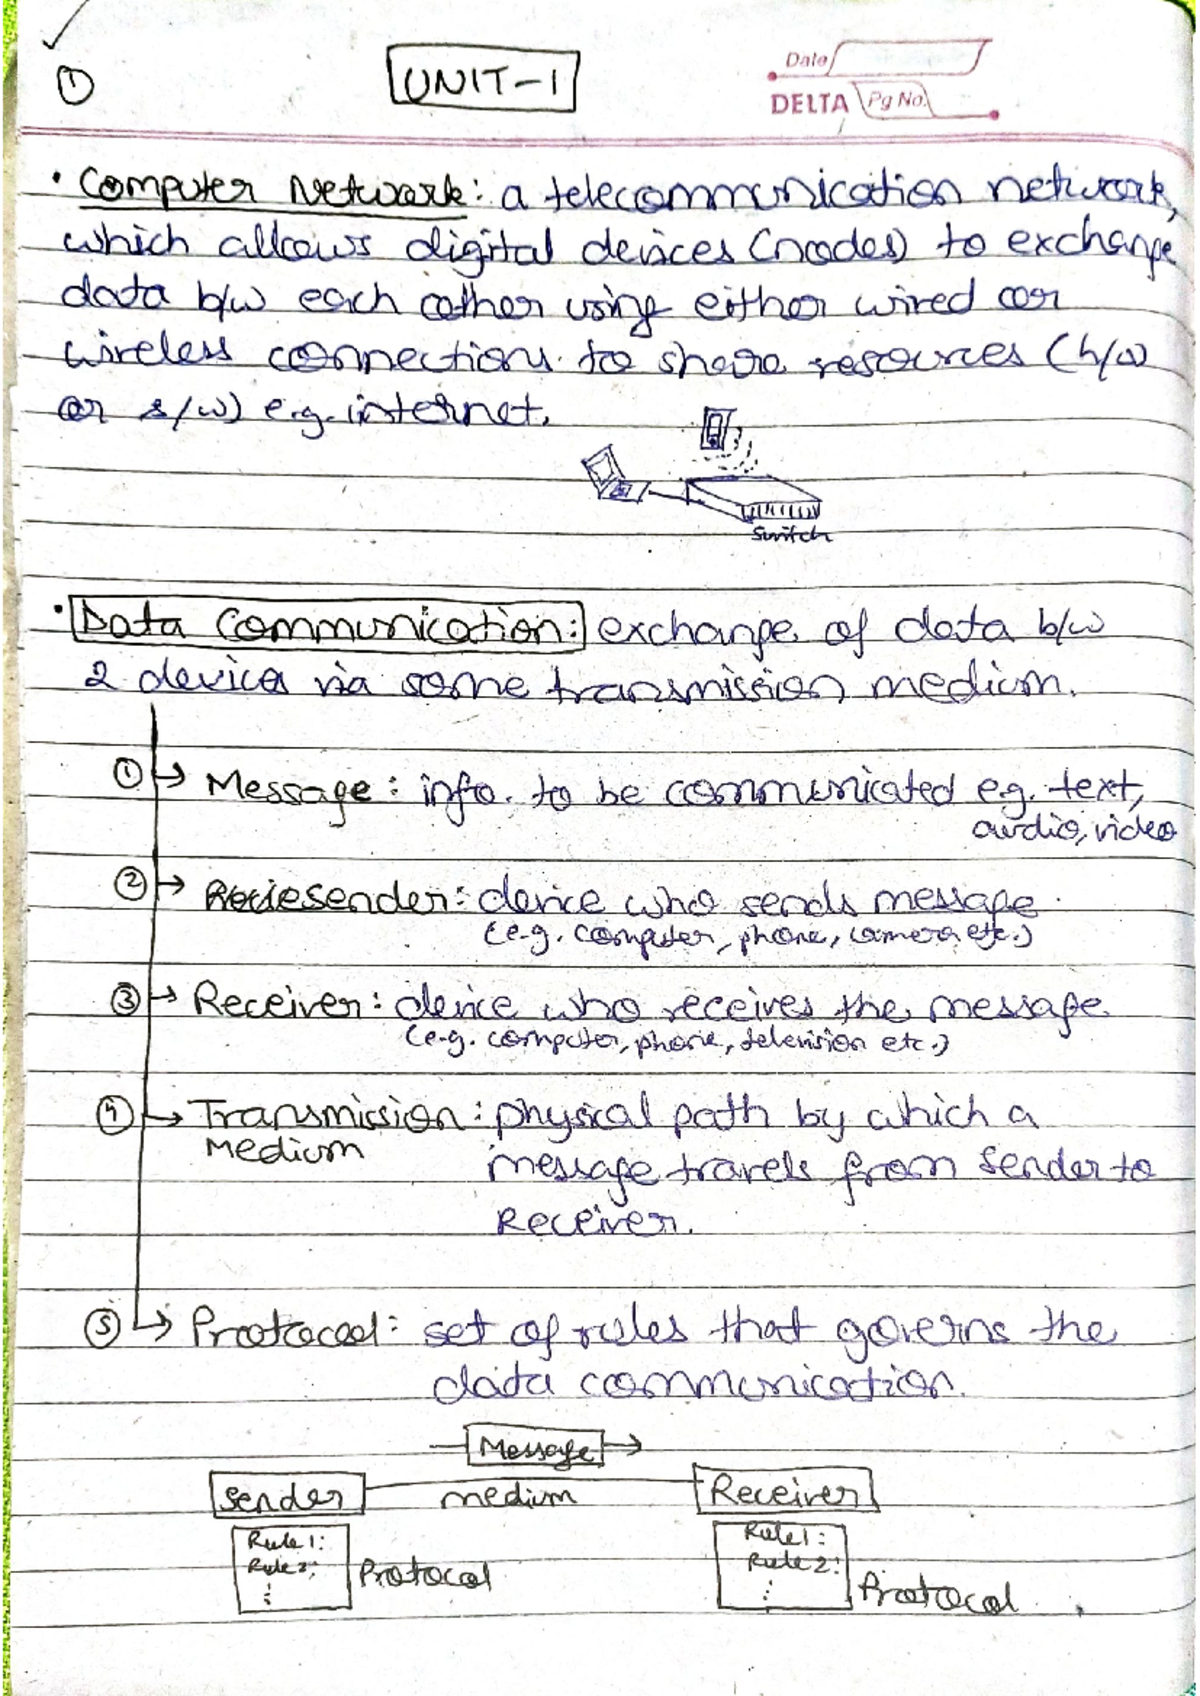 ①
UNIT-1
Date
DELTA Pg No.
• Computer Network: a telecommunication network,
which allows digital devices (nodes) to exchange
data b/w each other using either wired or
wireless connections to share resources (h/w
or s/w) e.g. internet.
Switch
• Data Communication: exchange of data b/w
2 devices via some transmission medium.
① → Message: info. to be communicated e.g. text,
audio, video
② → sender: device who sends message
(e.g. computer, phone, camera etc.)
③ → Receiver: device who receives the message
(e.g. computer, phone, television etc.)
④ → Transmission: physical path by which a
Medium message travels from Sender to
Receiver.
⑤ → Protocol: set of rules that governs the
data communication.
Message
Sender medium Receiver
Rule 1: Rule 1:
Rule 2: Protocol Rule 2: Protocol